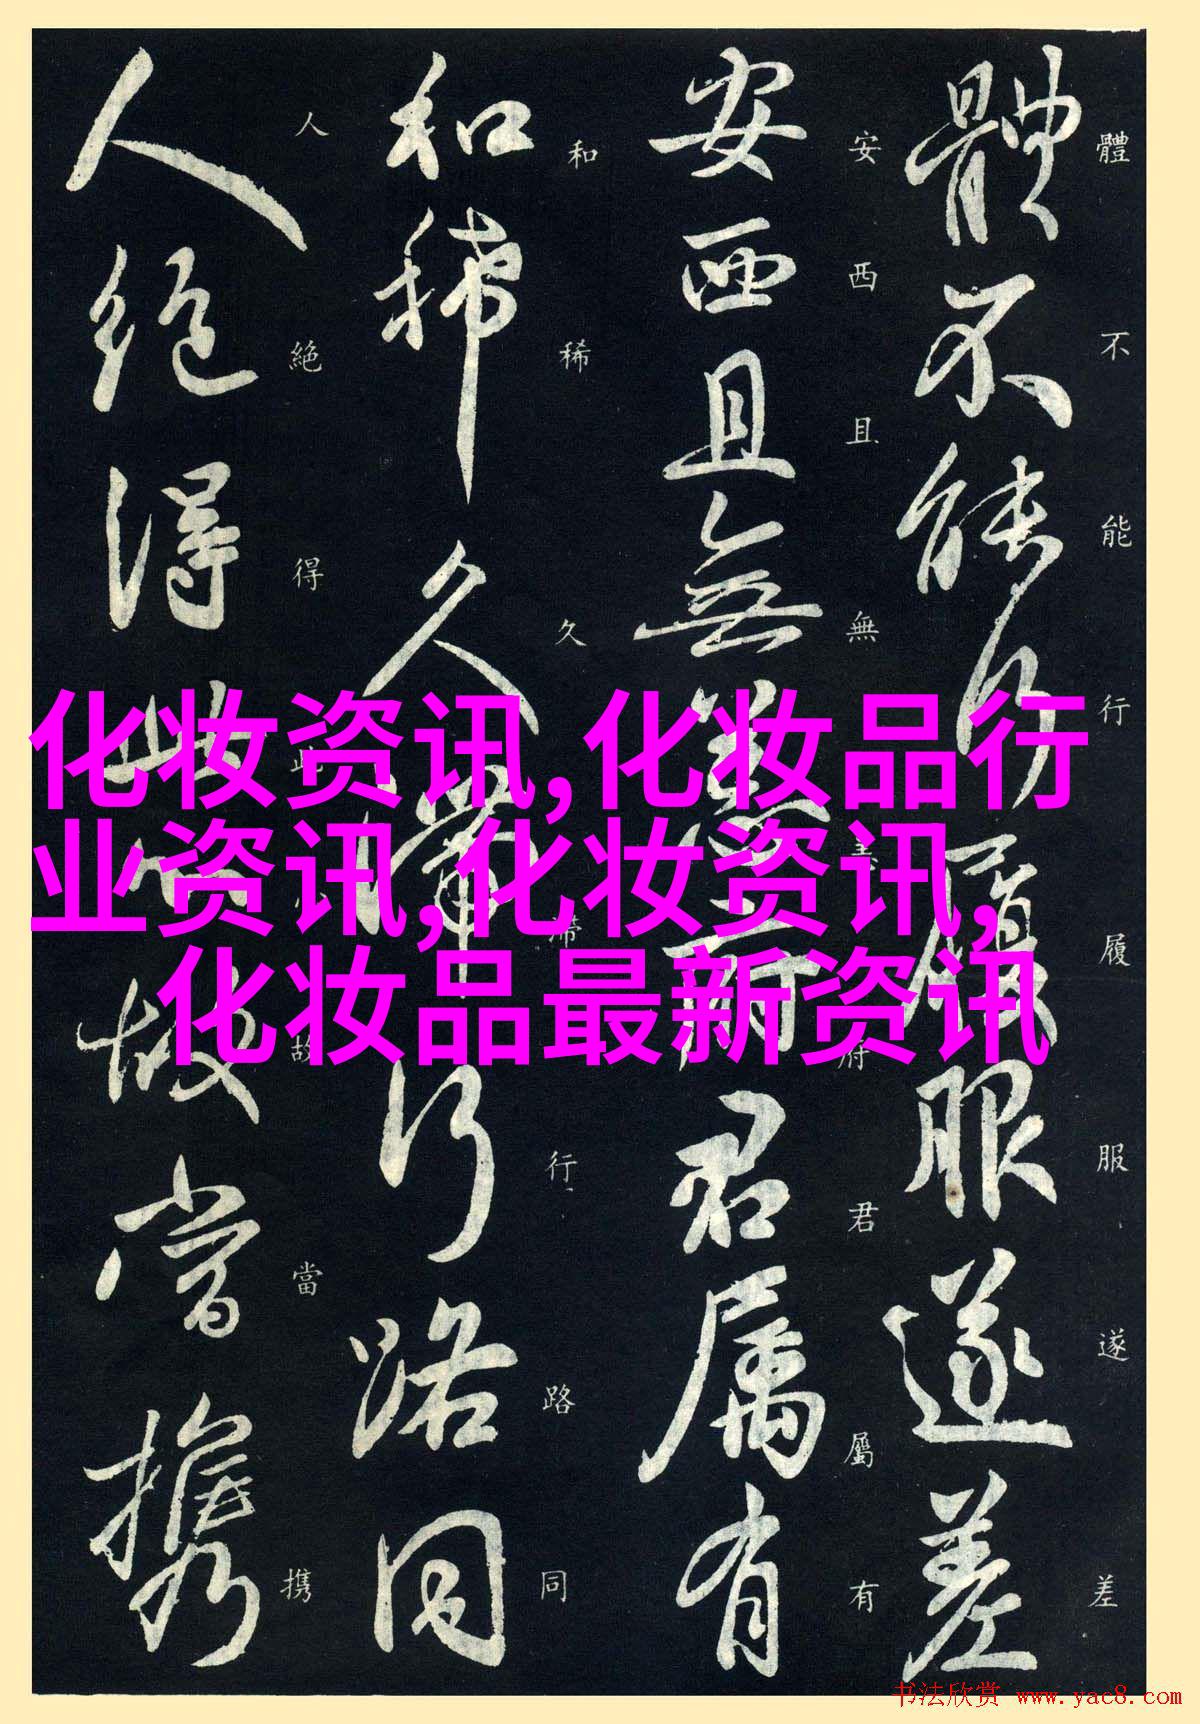 體不能行履服遂差
體不能行履服遂差
安西且無恙府君属有
安西且無府君屬有
和稀久滯行路同
和稀久滯行路同
人絕得此故當携
人絕得此故當携
化妆资讯,化妆品行
业资讯,化妆资讯,
化妆品最新资讯
书法欣赏 www.yac8.com